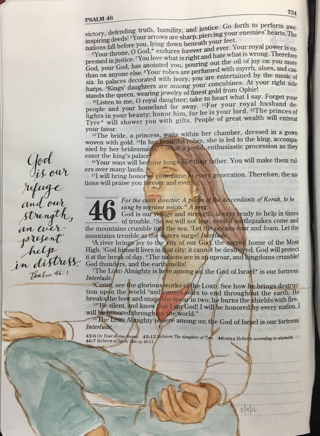 PSALM 46
734
victory, defending truth, humility, and justice. Go forth to perform awe-
inspiring deeds! ⁵Your arrows are sharp, piercing your enemies' hearts. The
nations fall before you, lying down beneath your feet.
⁶"Your throne, O God," endures forever and ever. Your royal power is ex-
pressed in justice. ⁷You love what is right and hate what is wrong. Therefore
God, your God, has anointed you, pouring out the oil of joy on you more
than on anyone else. ⁸Your robes are perfumed with myrrh, aloes, and cas-
sia. In palaces decorated with ivory, you are entertained by the music of
harps. ⁹Kings' daughters are among your concubines. At your right side
stands the queen, wearing jewelry of finest gold from Ophir!
¹⁰Listen to me, O royal daughter; take to heart what I say. Forget your
people and your homeland far away. ¹¹For your royal husband de-
lights in your beauty; honor him, for he is your lord. ¹²The princes of
Tyre* will shower you with gifts. People of great wealth will entreat
your favor.
¹³The bride, a princess, waits within her chamber, dressed in a gown
woven with gold. ¹⁴In her beautiful robes, she is led to the king, accompa-
nied by her bridesmaids. enthusiastic procession as they
enter the king's palace!
Your sons will become kings father. You will make them rul-
ers over many lands.
I will bring honor generation. Therefore, the na-
tions will praise you forever and ever.
God
is our
refuge
and our
strength,
an ever-
present
help
in distress.
Psalm 46:1
46
For the choir director: A psalm of the descendants of Korah, to be
sung by soprano voices.* A song.
God is our refuge and strength, always ready to help in times
of trouble. ²So we will not fear, even if earthquakes come and
the mountains crumble into the sea. ³Let the oceans roar and foam. Let the
mountains tremble as the waters surge! Interlude
⁴A river brings joy to the city of our God, the sacred home of the Most
High. ⁵God himself lives in that city; it cannot be destroyed. God will protect
it at the break of day. ⁶The nations are in an uproar, and kingdoms crumble!
God thunders, and the earth melts!
⁷The LORD Almighty is here among us; the God of Israel* is our fortress.
Interlude
⁸Come, see the glorious works of the LORD: See how he brings destruc-
tion upon the world ⁹and causes wars to end throughout the earth. He
breaks the bow and snaps the spear in two; he burns the shields with fire.
¹⁰"Be silent, and know that I am God! I will be honored by every nation. I
will be honored throughout the world."
¹¹The LORD Almighty is here among us; the God of Israel is our fortress.
Interlude